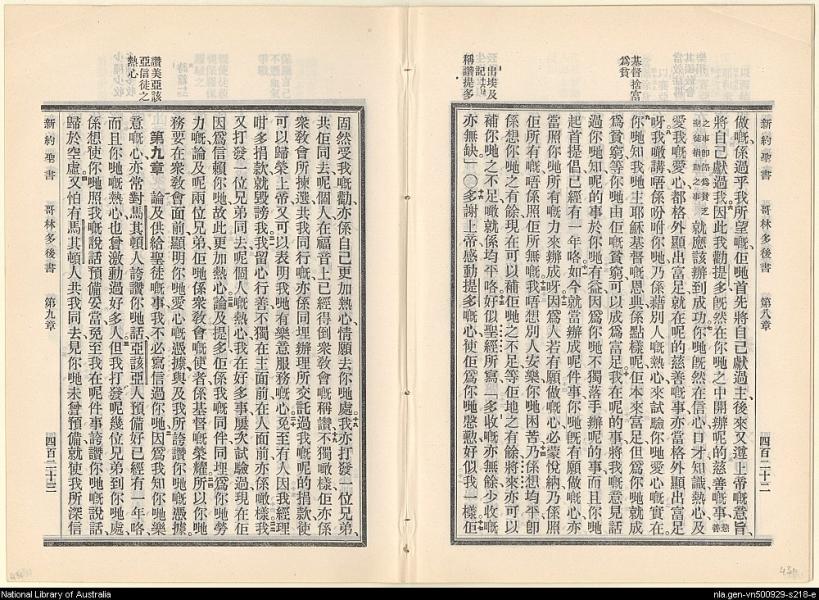 新約聖書　哥林多後書　第八章　四百二十二
基督捨富
爲貧
出埃及
記十六
稱讚提多
做嘅、係過乎我所望嘅、佢哋首先將自己獻過主、後來又遵上帝嘅意旨、
將自己獻過我、因此我勸提多、旣然在你哋之中開辦呢的慈善嘅事、
就應該辦到成功、你哋旣然在信心口才知識熱心、及
愛我嘅愛心、都格外顯出富足、就在呢的慈善嘅事、亦當格外顯出富足
呀、我噉講、唔係吩咐你哋、乃係藉別人嘅熱心、來試驗你哋愛心嘅實在、
你哋知我哋主耶穌基督嘅恩典係點樣呢、佢本來富足、但爲你哋就成
爲貧窮、等你哋由佢嘅貧窮、可以成爲富足、我在呢的事、將我嘅意見話
過你哋知、呢的事於你哋有益、因爲你哋不獨落手辦呢的事、而且你哋
起首提倡已經有一年咯、如今就當辦成呢件事、你哋旣有願做嘅心、亦
當照你哋所有嘅力來辦成呀、因爲人若有願做嘅心、必蒙悅納、乃係照
佢所有嘅、唔係照佢所無嘅、我唔想別人安樂、你哋困苦、乃係想均平、卽
係想你哋之有餘、現在可以補佢哋之不足、等佢哋之有餘、將來亦可以
補你哋之不足、噉就係均平咯、好似聖經所寫、多收嘅亦無餘、少收嘅
亦無缺、〇多謝上帝、感動提多嘅心、使佢爲你哋慇懃、好似我一樣、佢
新約聖書　哥林多後書　第九章　四百二十三
讚美亞該
亞信徒之
熱心
固然受我嘅勸、亦係自己更加熱心、情願去你哋處、我亦打發一位兄弟、
共佢同去、呢個人在福音上、已經得倒衆敎會嘅稱讚、不獨噉樣、佢亦係
衆敎會所揀選、共我同行嘅、亦係同埋辦理所交託過我嘅、呢的捐款、使
可以歸榮上帝、又可以表明我哋有樂意服務嘅心、免至有人因我經理
咁多捐款、就毀謗我、我留心行善、不獨在主面前、在人面前亦係噉樣、我
又打發一位兄弟同去、呢個人嘅熱心、我在好多事屢次試驗過、現在佢
因爲信賴你哋、故此更加熱心、論及提多、佢係我嘅同伴、同埋爲你哋勞
力嘅、論及呢兩位兄弟、佢哋係衆敎會嘅使者、係基督嘅榮耀、所以你哋
務要在衆敎會面前、顯明你哋愛心嘅憑據、與及我所誇讚你哋嘅憑據、
第九章　論及供給聖徒嘅事、我不必寫信過你哋、因爲我知你哋樂
意嘅心、亦常對馬其頓人誇讚你哋、話、亞該亞人預備好已經有一年咯、
而且你哋嘅熱心、也曾激動過好多人、但我打發呢幾位兄弟到你哋處、
係想使你哋照我嘅說話預備妥當、免至我在呢件事、誇讚你哋嘅說話、
歸於空虛、又怕有馬其頓人共我同去、見你哋未曾預備、就使我所深信
National Library of Australia
nla.gen-vn500929-s218-e